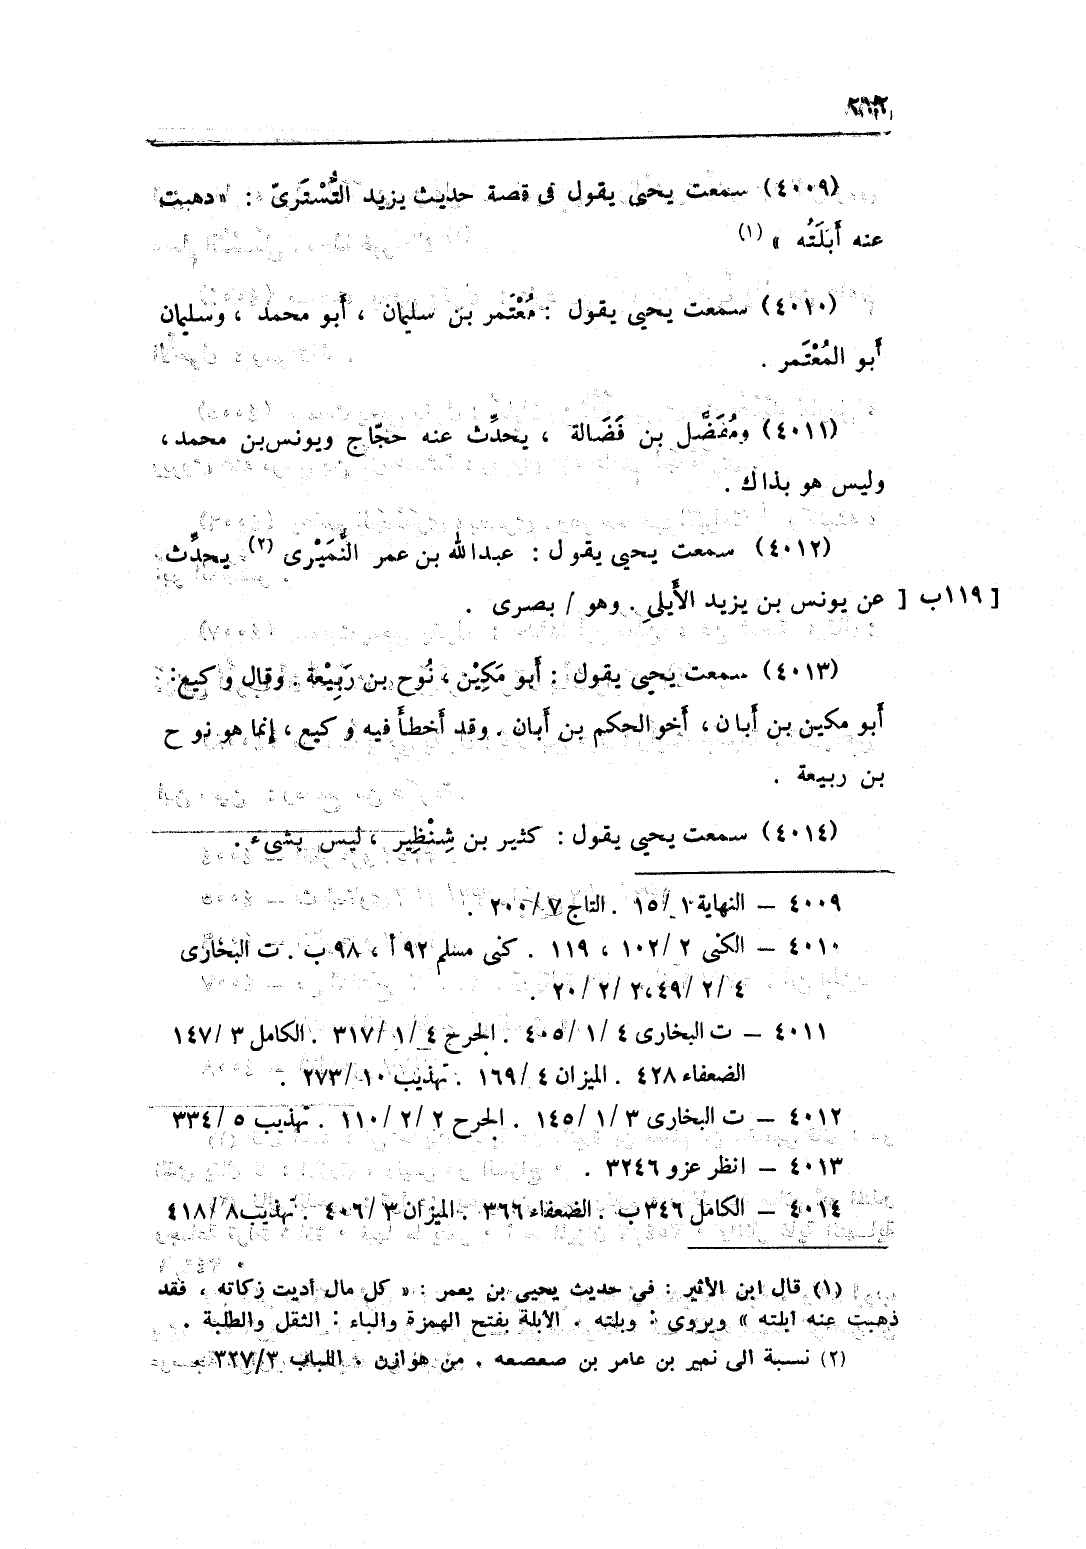 (٤٠٠٩) سمعت يحيى يقول فى قصة حديث يزيد التُّسْتَرىّ : «دهبت
عنه أَبَلَتُه » (١)
(٤٠١٠) سمعت يحيى يقول : مُعْتَمر بن سليمان ، أَبو محمد ، وسليمان
أَبو المُعْتَمر .
(٤٠١١) ومُفَضَّل بن فَضَالة ، يحدِّث عنه حجّاج ويونس بن محمد ،
وليس هو بذاك .
(٤٠١٢) سمعت يحيى يقول : عبدالله بن عمر النُّمَيْرى (٢) يحدِّث
[ ١١٩ب ] عن يونس بن يزيد الأَيلىِ . وهو / بصرى .
(٤٠١٣) سمعت يحيى يقول : أَبو مَكِيْن ، نُوح بن رَبِيْعة . وقال وكيع :
أَبو مكين بن أَبان ، أَخو الحكم بن أَبان . وقد أَخطأَ فيه وكيع ، إِنما هو نوح
بن ربيعة .
(٤٠١٤) سمعت يحيى يقول : كثير بن شِنْظِير ، ليس بشىء .
٤٠٠٩ – النهاية ١/١٥ . التاج ٧/٢٠٠ .
٤٠١٠ – الكنى ٢/١٠٢ ، ١١٩ . كنى مسلم ٩٢ أ ، ٩٨ ب . ت البخارى
٤/٢/٤٩ ، ٢/٢/٢٠ .
٤٠١١ – ت البخارى ٤/١/٤٠٥ . الجرح ٤/١/٣١٧ . الكامل ٣/١٤٧
الضعفاء ٤٢٨ . الميزان ٤/١٦٩ . تهذيب ١٠/٢٧٣ .
٤٠١٢ – ت البخارى ٣/١/١٤٥ . الجرح ٢/٢/١١٠ . تهذيب ٥/٣٣٤
٤٠١٣ – انظر عزو ٣٢٤٦ .
٤٠١٤ – الكامل ٣٤٦ ب . الضعفاء ٣٦٦ . الميزان ٣/٤٠٦ . تهذيب ٨/٤١٨
(١) قال ابن الأثير : في حديث يحيى بن يعمر : « كل مال أديت زكاته ، فقد
ذهبت عنه ابلته » ويروى : وبلته . الأبلة بفتح الهمزة والباء : الثقل والطلبة .
(٢) نسبة الى نمير بن عامر بن صعصعه . من هوازن . اللباب ٣/٣٢٧